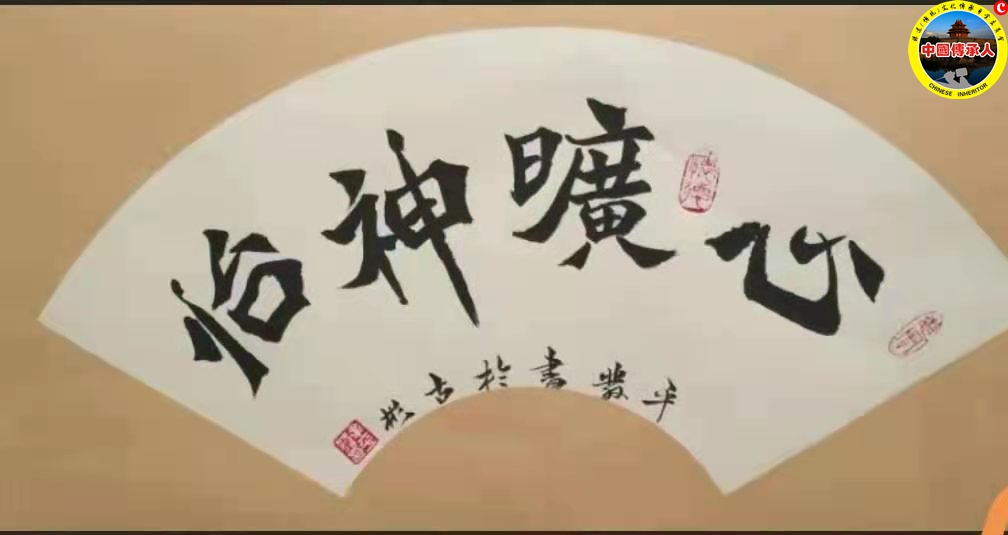 心曠神怡
平書於古
中國傳承人
CHINESE INHERITOR